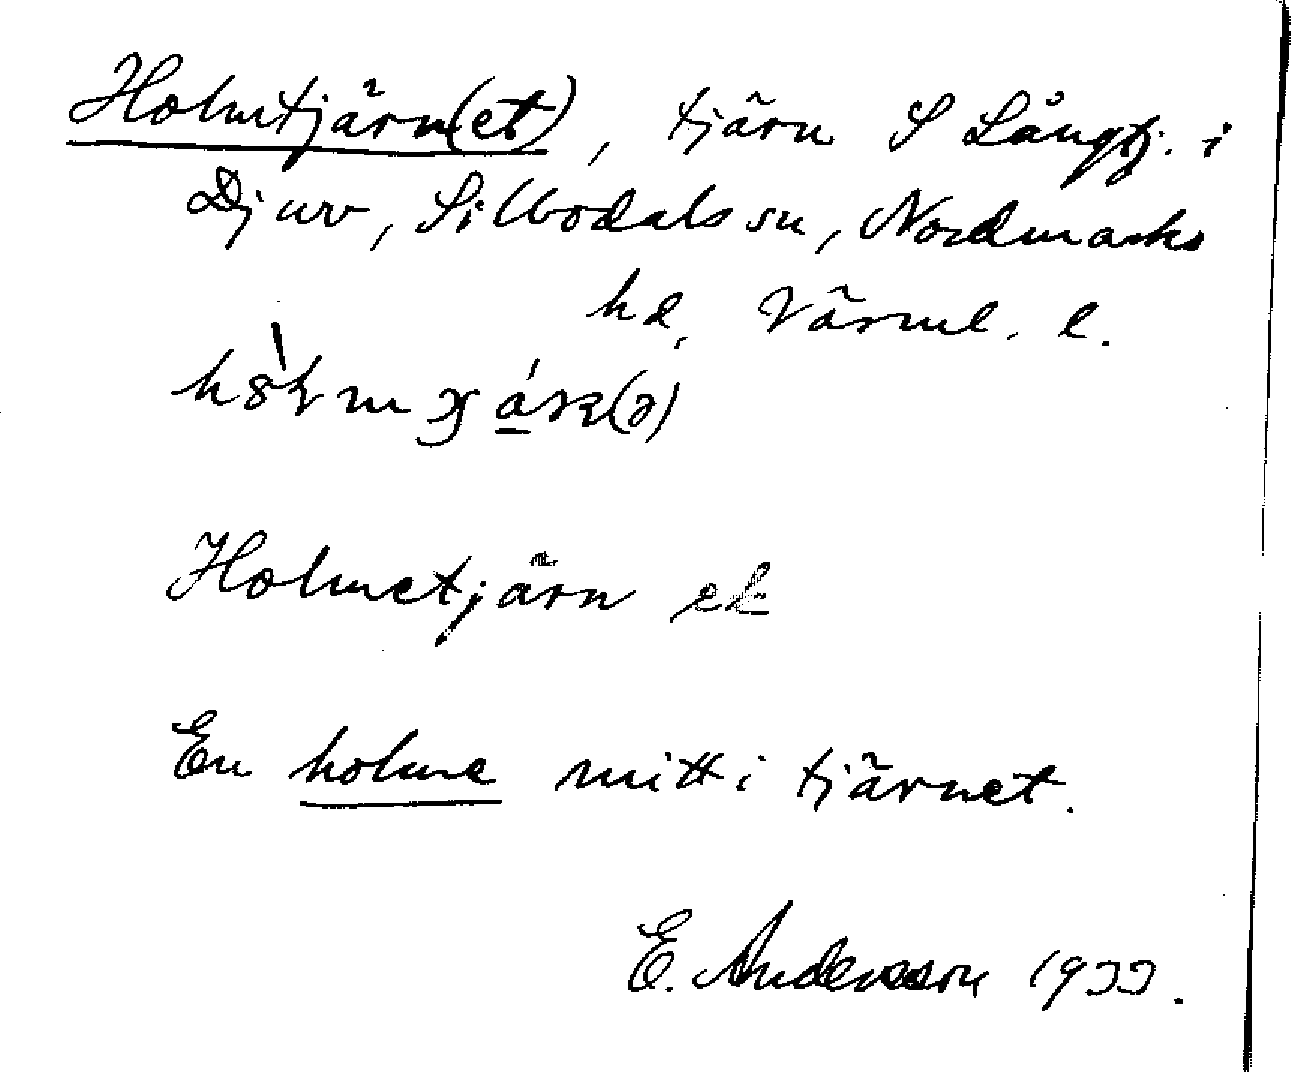 Holmtjärn(et), tjärn S Långtj. i
Djurv, Silbodals sn, Nordmarks
hd, Värml. l.
Holmetjärn ek
En holme mitt i tjärnet.
E. Andersson 1933.